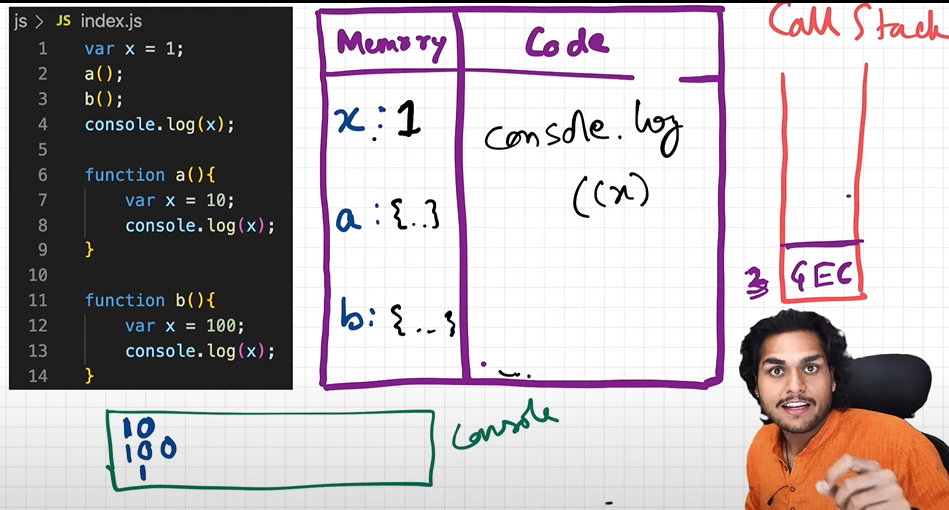 js > JS index.js
1 var x = 1;
2 a();
3 b();
4 console.log(x);
5
6 function a(){
7 var x = 10;
8 console.log(x);
9 }
10
11 function b(){
12 var x = 100;
13 console.log(x);
14 }
Memory Code
x : 1
a : {..}
b : {..}
console.log
((x)
Call Stack
GEC
10
100
1
Console